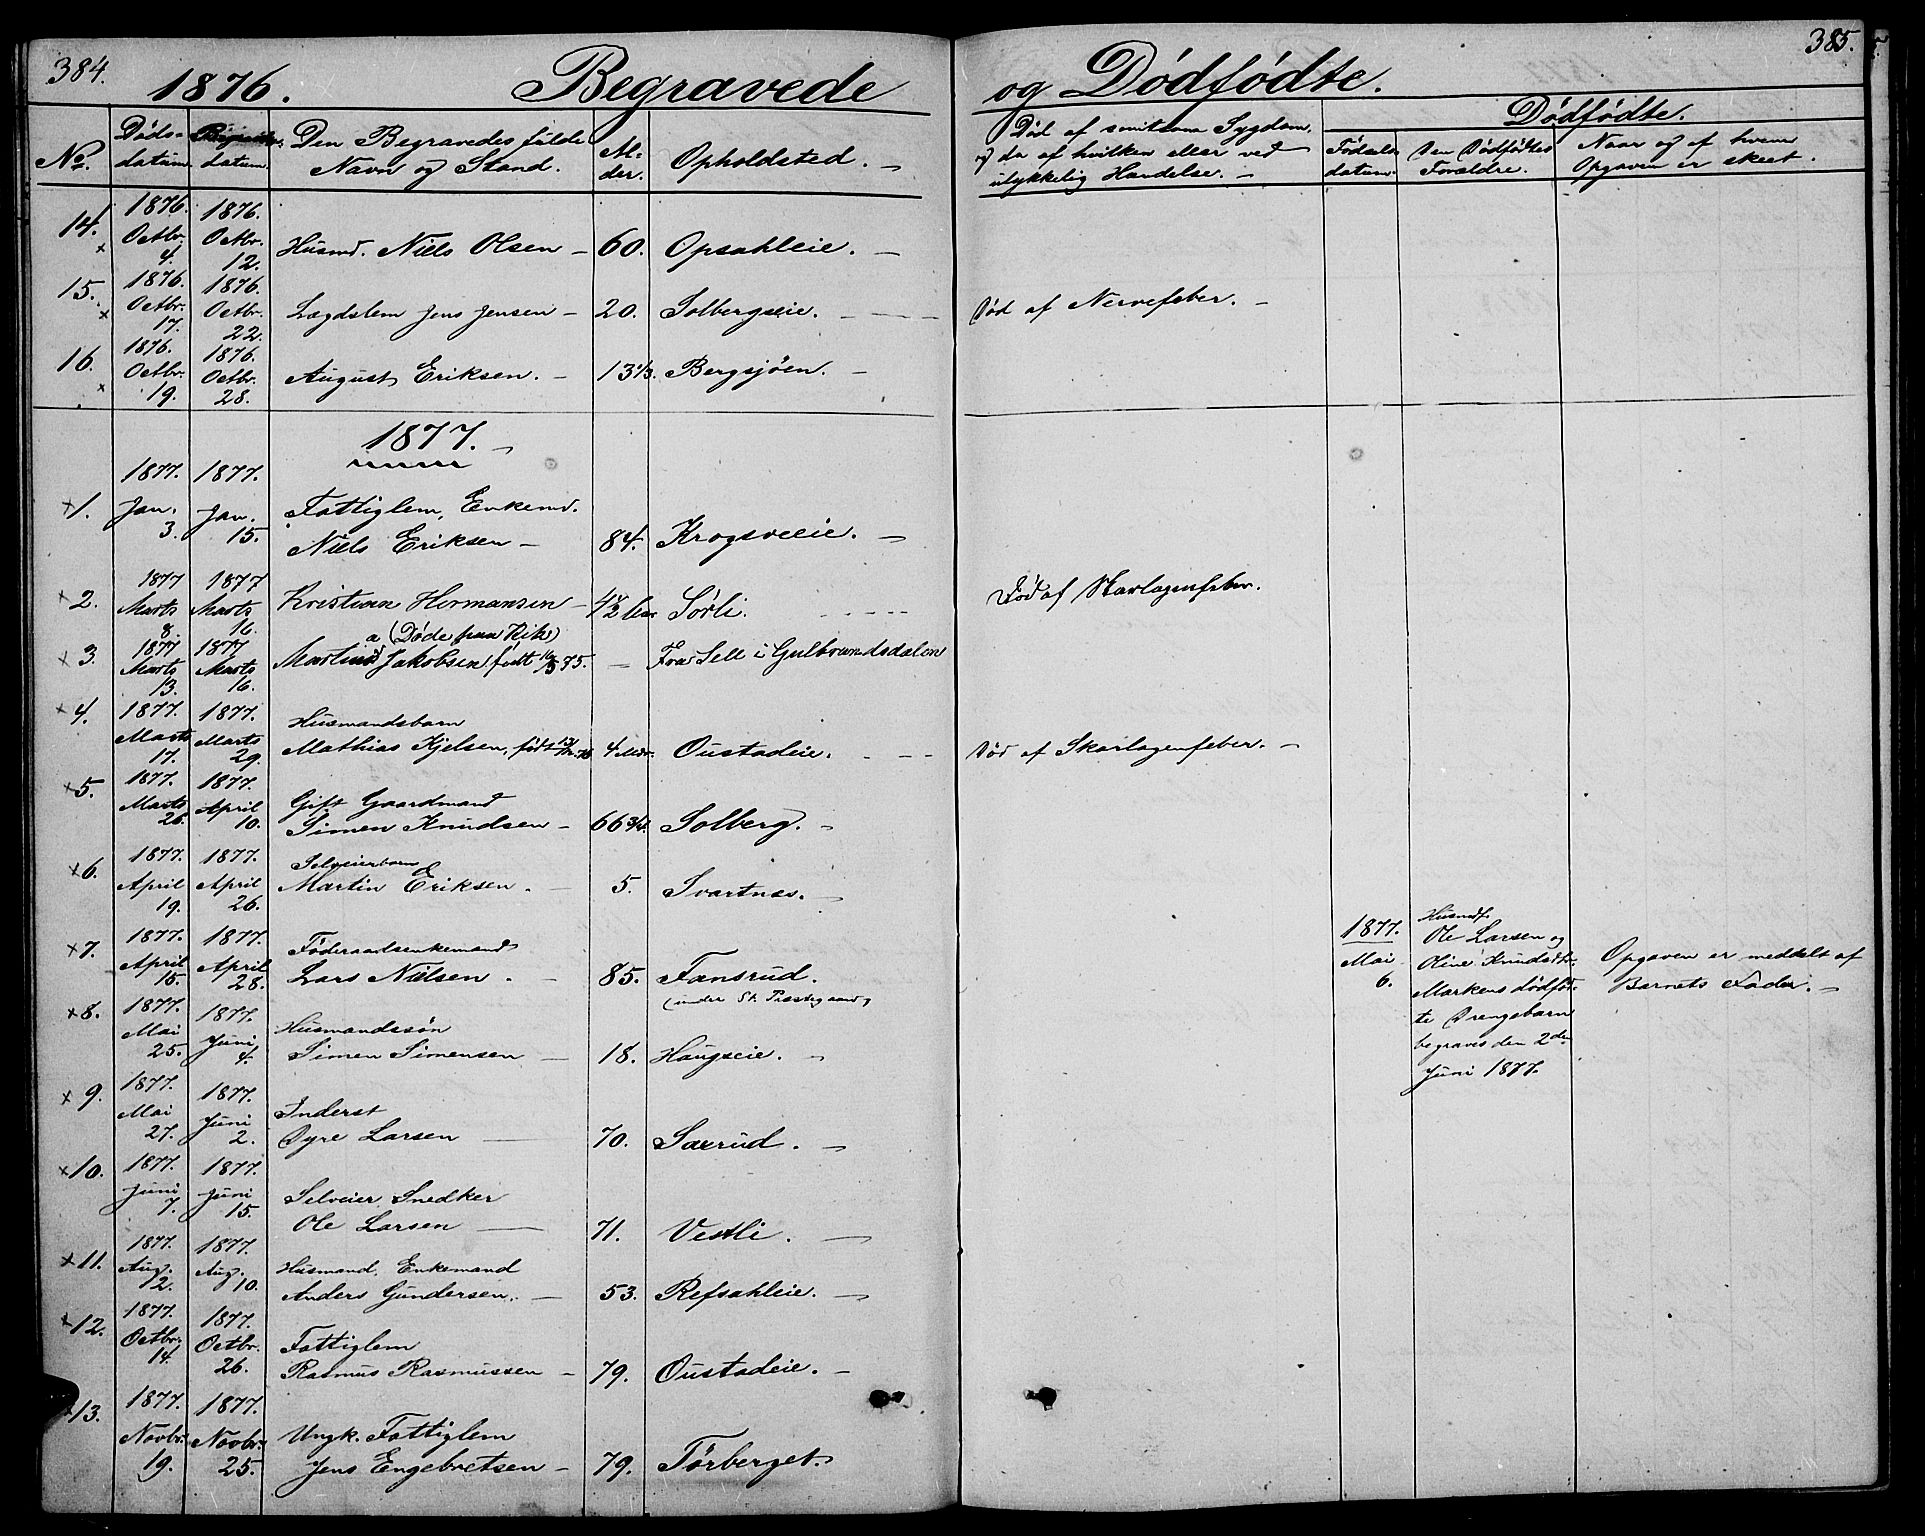 384.
1876.
Begravede
Døds-
datum.
datum.
Den Begravedes fulde
Navn og Stand.
Al-
der.
Opholdsted. –
No.
14.
1876.
Octbr.
4.
1876.
Octbr.
12.
Husmd. Niels Olsen –
60.
Opsahleie. –
15.
1876.
Octbr.
17.
1876.
Octbr.
22.
Lægdslem Jens Jensen –
20.
Solbergseie. –
16.
1876.
Octbr.
19.
1876.
Octbr.
28.
August Eriksen. –
13 1/3.
Bergsjöen. –
1877.
1.
1877.
Jan.
3.
1877.
Jan.
15.
Fattiglem, Enkemd.
Niels Eriksen –
84.
Krogsveeie. –
2.
1877
Marts
8.
1877
Marts
16.
Kristian Hermansen –
4 1/2
Sørli.
3.
1877
Marts
13.
1877
Marts
16.
a (Døde paa
Jakobsen født 75.
–
Fra Sell i Gulbrandsdalen
4.
1877.
Marts
17.
1877.
Marts
29.
Husmandsbarn
Mathias Kjelsen, født
4 Mdr.
Oustadeie.
5.
1877.
Marts
26.
1877.
April
10.
Gift Gaardmand
Simen Knudsen –
66 3/4.
Solberg. –
6.
1877.
April
19.
1877.
April
26.
Selveierbarn
Martin Eriksen. –
5.
Svartnæs. –
7.
1877.
April
15.
1877.
April
28.
Føderaadsenkemand
Lars Nielsen. –
85.
Fansrud.
(under St. Præstegaard)
8.
1877.
Mai
25.
1877.
Juni
4.
Husmandssøn
Simen Simensen –
18.
Haugseie. –
9.
1877.
Mai
27.
1877.
Juni
2.
Inderst
Syre Larsen –
70.
Saxrud. –
10.
1877.
Juni
7.
1877.
Juni
15.
Selveier Snedker
Ole Larsen –
71.
Vestli. –
11.
1877.
Aug.
2.
1877.
Aug.
10.
Husmand, Enkemand
Anders Gundersen. –
53.
Refsahleie. –
12.
1877.
Octbr.
14.
1877.
Octbr.
26.
Fattiglem
Rasmus Rasmussen –
79.
Oustadeie. –
13.
1877.
Novbr.
19.
1877.
Novbr.
25.
Ungk. Fattiglem
Jens Engebretsen –
79.
Tørberget.
385.
og Dødfødte.
Død af smitsom Sygdom,
og da af hvilken eller ved
ulykkelig Hændelse. –
Dødfødte.
Fødsels-
datum.
Den Dødfødtes
Forældre.
Naar og af hvem
Opgaven er skeet.
Død af Nervefeber. –
Død af Skarlagenfeber.
Død af Skarlagenfeber. –
1877.
Mai
6.
Husmdf.
Ole Larsen og
Oline Knudsdtr.
Markens dødfød-
te Drengebarn
begraves den 2den
Juni 1877.
Opgaven er meddelt af
Barnets Fader. –